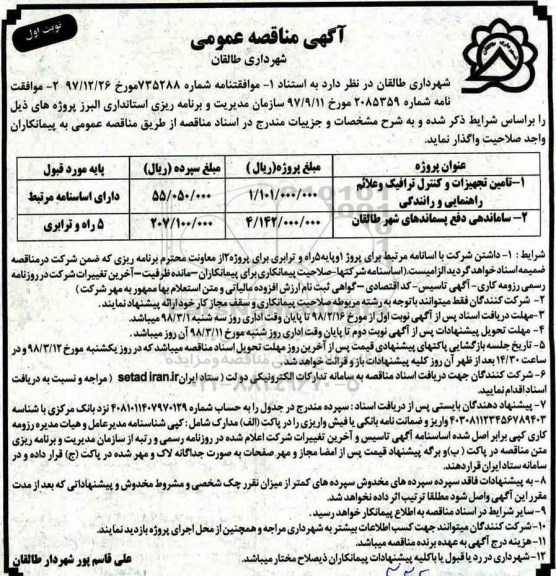 نوبت اول
آگهی مناقصه عمومی
شهرداری طالقان
شهرداری طالقان
شهرداری طالقان در نظر دارد به استناد ۱- موافقتنامه شماره ۷۳۵۲۸۸مورخ ۹۷/۱۲/۲۶ ۲- موافقت
نامه شماره ۲۰۸۵۳۵۹ مورخ ۹۷/۹/۱۱ سازمان مدیریت و برنامه ریزی استانداری البرز پروژه های ذیل
را براساس شرایط ذکر شده و به شرح مشخصات و جزییات مندرج در اسناد مناقصه از طریق مناقصه عمومی به پیمانکاران
واجد صلاحیت واگذار نماید.
عنوان پروژه مبلغ پروژه(ریال) مبلغ سپرده (ریال) پایه مورد قبول
۱-تامین تجهیزات و کنترل ترافیک وعلائم
راهنمایی و رانندگی ۱/۱۰۱/۰۰۰/۰۰۰ ۵۵/۰۵۰/۰۰۰ دارای اساسنامه مرتبط
۲- ساماندهی دفع پسماندهای شهر طالقان ۴/۱۴۲/۰۰۰/۰۰۰ ۲۰۷/۱۰۰/۰۰۰ ۵ راه و ترابری
شرایط : ۱- داشتن شرکت با اسانامه مرتبط برای پروژ ۱وپایه۵راه و ترابری برای پروژه۲از معاونت محترم برنامه ریزی که ضمن شرکت درمناقصه
ضمیمه اسناد خواهد گردید الزامیست.(اساسنامه شرکتها-صلاحیت پیمانکاری برای پیمانکاران –مانده ظرفیت–آخرین تغییرات شرکت در روزنامه
رسمی رزومه کاری- آگهی تاسیس- کد اقتصادی –گواهی ثبت نام ارزش افزوده مالیاتی و متن استعلام بها ممهور به مهر شرکت)
۲- شرکت کنندگان فقط میتوانند با توجه به رشته مربوطه صلاحیت پیمانکاری و سقف مجاز کار خود ارائه پیشنهاد نمایند.
۳-مهلت دریافت اسناد پس از آگهی نوبت اول از مورخ ۹۸/۲/۱۶ تا پایان وقت اداری روز سه شنبه ۹۸/۳/۱ میباشد
۴- مهلت تحویل پیشنهادات پس از آگهی نوبت دوم تا پایان وقت اداری روز شنبه مورخ ۹۸/۳/۱۱ آن روز میباشد.
۵- تاریخ جلسه بازگشایی پاکتهای پیشنهادی قیمت پس از آخرین روز مهلت تحویل اسناد مناقصه میباشد که در روز یکشنبه مورخ ۹۸/۳/۱۲ و در
ساعت ۱۴/۳۰ بعد از ظهر آن روز کلیه پیشنهادات باز و قرائت خواهد شد.
۶- شرکت کنندگان جهت دریافت اسناد مناقصه به سامانه تدارکات الکترونیکی دولت ( ستاد ایرانsetad iran.ir ) مراجعه و نسبت به دریافت
اسناد اقدام نمایید.
۷- پیشنهاد دهندگان بایستی پس از دریافت اسناد : سپرده مندرج در جدول را به حساب شماره ۴۰۸۱۰۱۱۴۰۷۹۷۰۱۲۹ نزد بانک مرکزی با شناسه
واریز و ضمانت نامه بانکی یا فیش واریزی را در پاکت (الف) مدارک شامل : کپی شناسنامه مدیرعامل و هیات مدیره رزومه
کاری کپی برابر اصل شده اساسنامه آگهی تاسیس و آخرین تغییرات شرکت اعلام شده در روزنامه رسمی و رتبه از سازمان مدیریت و برنامه ریزی
متن مناقصه در پاکت (ب)و برگه پیشنهاد قیمت پس از امضا مجاز و مهر صفحات به صورت جداگانه لاک و مهر شده در پاکت (ج) قرار داده و در
سامانه ستاد ایران قراردهند.
۸- به پیشنهادات فاقد سپرده سپرده های مخدوش سپرده های کمتر از میزان نقرر چک شخصی و مشروط مخدوش و پیشنهاداتی که بعد از مدت
مقرر این آگهی واصل شود مطلقا ترتیب اثر داده نخواهد شد.
۹-سایر شرایط در اسناد مناقصه به اطلاع پیمانکار خواهد رسید.
۱۰-شرکت کنندگان میتوانند جهت کسب اطلاعات بیشتر به شهرداری مراجه و همچنین از محل اجرای پروژه بازدید نمایند.
۱۱-هزینه درج آگهی به عهده برنده مناقصه میباشد.
۱۲-شهرداری در رد یا قبول یا باکلیه پیشنهادات پیمانکاران ذیصلاح مختار میباشد.
علی قاسم پور شهردار طالقان